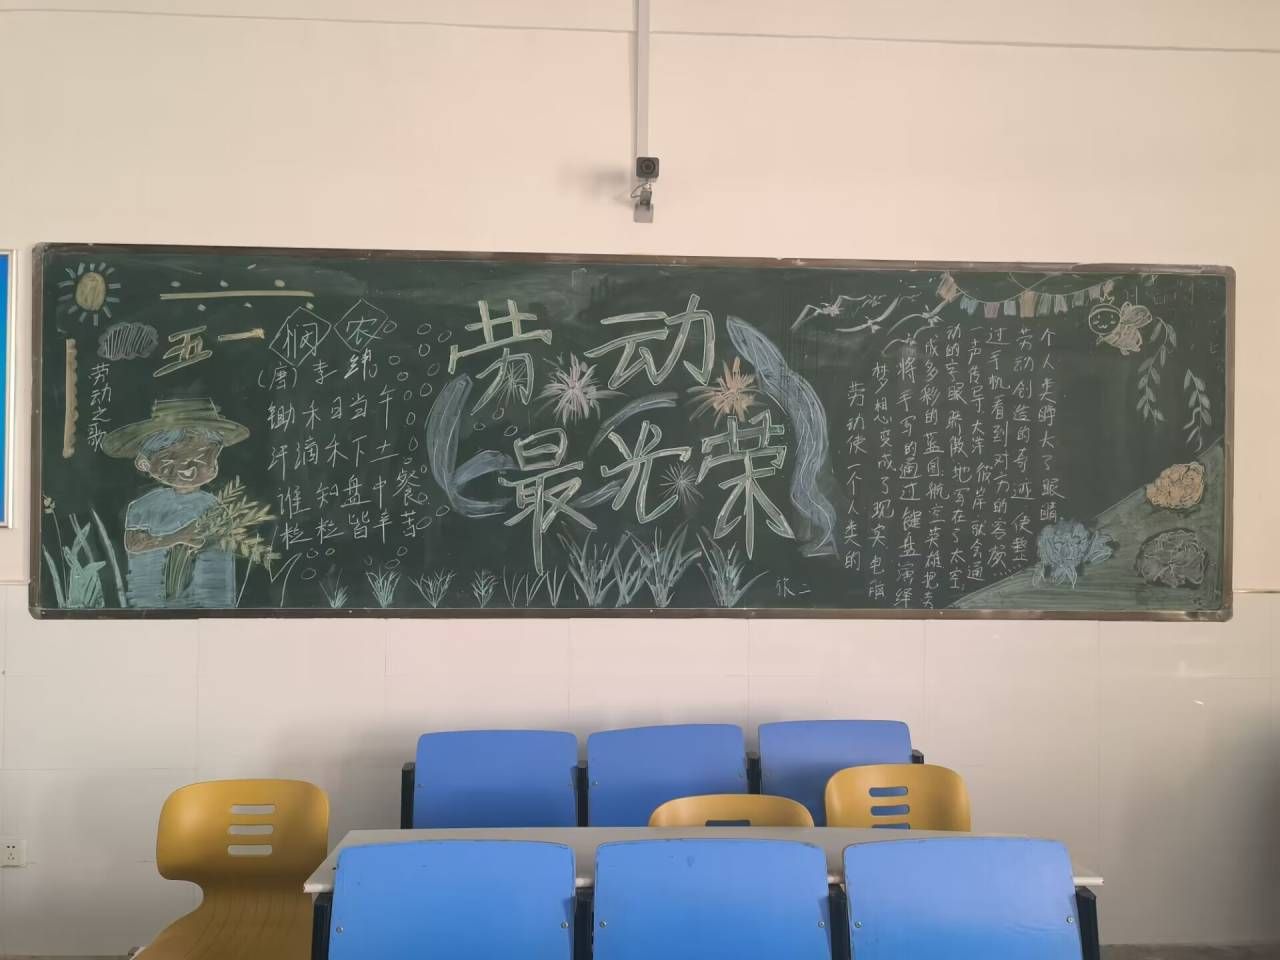 五一
劳动之歌
悯农
(唐)李绅
锄禾日当午
汗滴禾下土
谁知盘中餐
粒粒皆辛苦
劳动
最光荣
张二
劳动使一个人类的
梦想变成了现实电脑
将手写的通过键盘演绎
成多彩的蓝图航空英雄把劳
动的骄傲地写在了太空
一声传导大洋彼岸就会通
过手机看到对方的容颜
劳动创造的奇迹使整
个人类睁大了眼睛